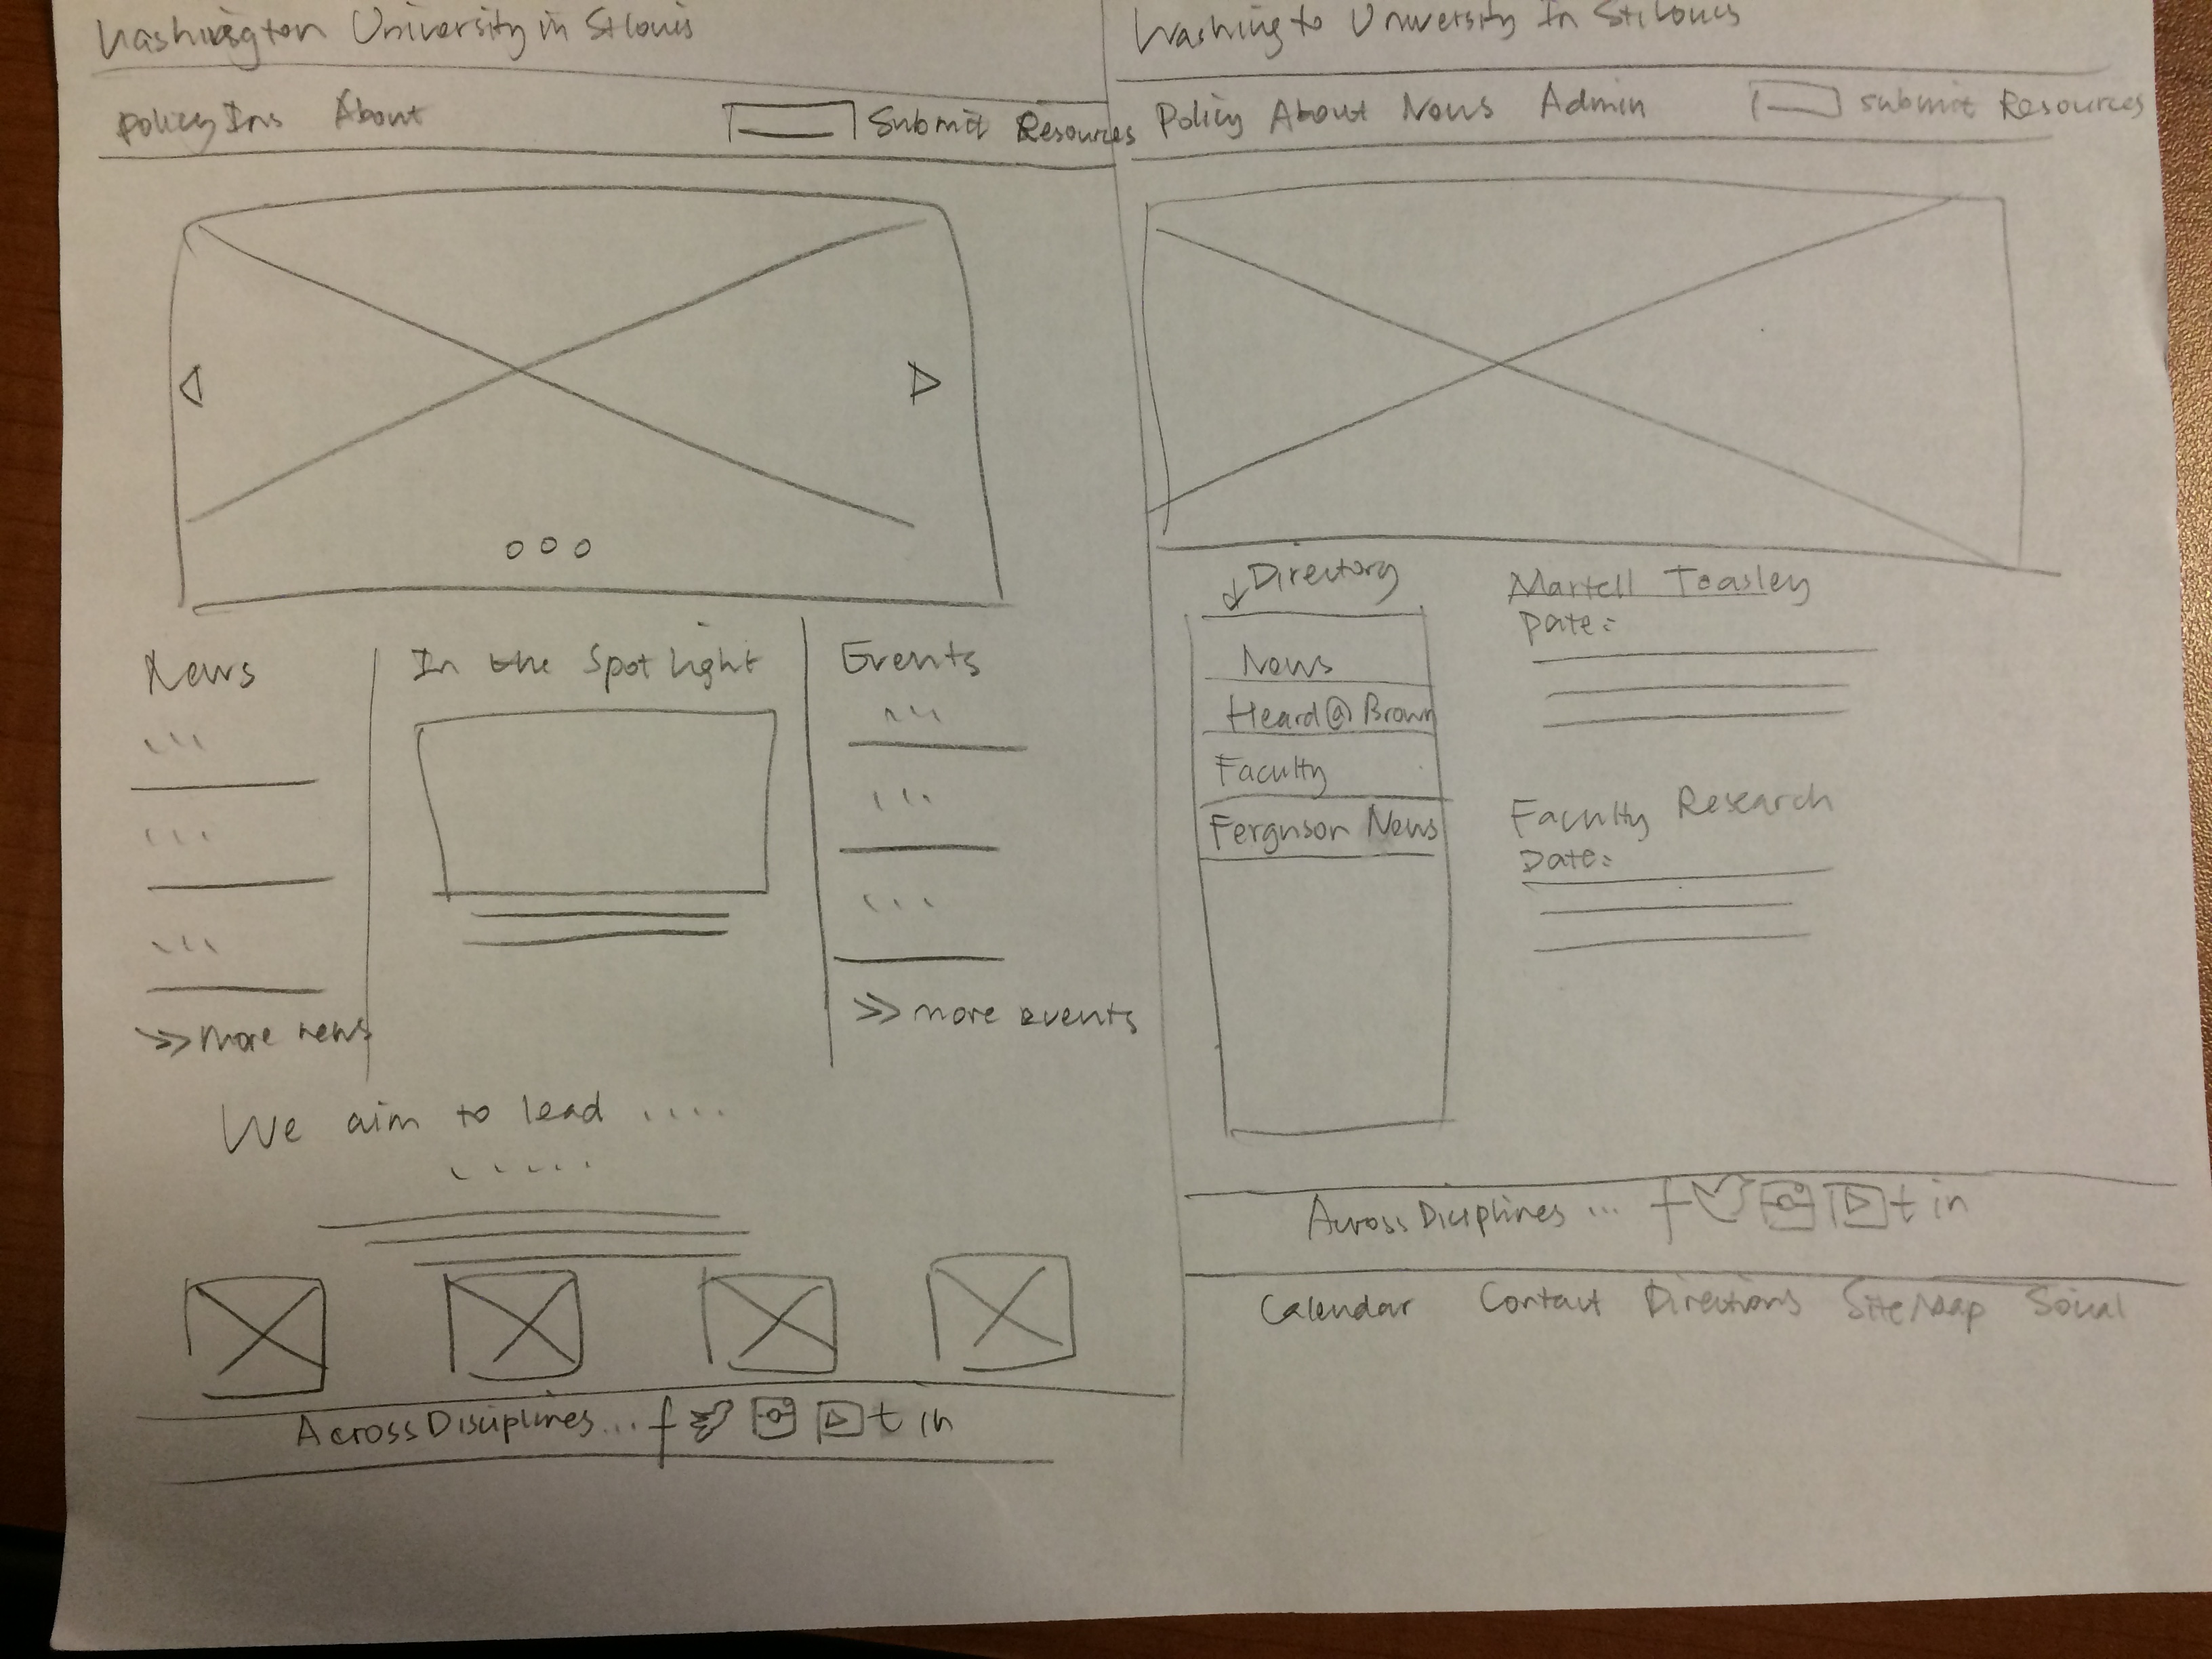 Washington University in St Louis
Policy Ins About Submit Resources
News
In the Spotlight
Events
>> more news
>> more events
We aim to lead ....
.....
Across Disciplines... f t in
Washingto University In St. Louis
Policy About News Admin Submit Resources
Directory
News
Heard@Brown
Faculty
Ferguson News
Martell Teasley
Date:
Faculty Research
Date:
Across Diciplines ... f t in
Calendar Contact Directions Site Map Social